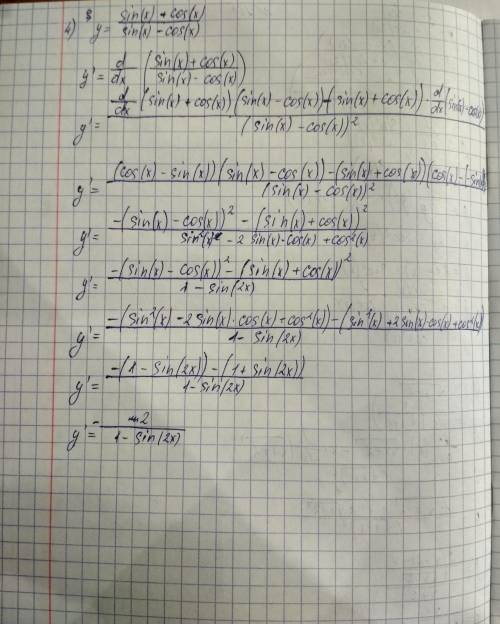 4) y = (sin(x) + cos(x))/(sin(x) - cos(x))
y' = d/dx ((sin(x) + cos(x))/(sin(x) - cos(x)))
y' = (d/dx (sin(x) + cos(x)) (sin(x) - cos(x)) - (sin(x) + cos(x)) · d/dx (sin(x) - cos(x)))/((sin(x) - cos(x))²)
y' = ((cos(x) - sin(x)) (sin(x) - cos(x)) - (sin(x) + cos(x)) (cos(x) - (-sin(x)))/((sin(x) - cos(x))²)
y' = (-(sin(x) - cos(x))² - (sin(x) + cos(x))²)/(sin²(x) - 2 sin(x)·cos(x) + cos²(x))
y' = (-(sin(x) - cos(x))² - (sin(x) + cos(x))²)/(1 - sin(2x))
y' = (-(sin²(x) - 2 sin(x)·cos(x) + cos²(x)) - (sin²(x) + 2 sin(x)·cos(x) + cos²(x)))/(1 - sin(2x))
y' = (-(1 - sin(2x)) - (1 + sin(2x)))/(1 - sin(2x))
y' = - 2/(1 - sin(2x))